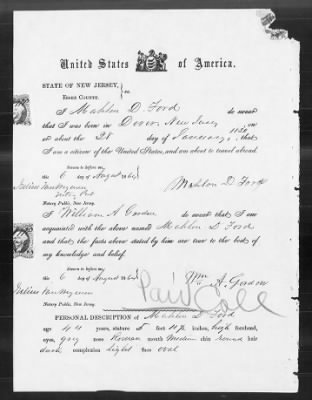 United States of America.
STATE OF NEW JERSEY, } ss.
ESSEX COUNTY.
I Mahlon D. Ford do swear
that I was born in Dover New Jersey on
or about the 28 day of January 1820, that
I am a citizen of the United States, and am about to travel abroad.
Sworn to before me
this 6 day of August 186
Mahlon D Ford
Notary Public, New Jersey.
I William A Gordon do swear that I am
acquainted with the above named Mahlon D. Ford
and that the facts above stated by him are true to the best of
my knowledge and belief.
Sworn to before me
this 6 day of August 186
Wm A. Gordon
Notary Public, New Jersey.
Paid
PERSONAL DESCRIPTION OF Mahlon D. Ford
age 44 years, stature 5 feet inches, high forehead,
eyes, grey nose Roman mouth Medium chin round hair
dark complexion light face oval